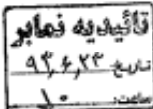 تائیدیه نمابر
تاریخ: ۹۳,۶,۲۳
ساعت: ۱۰